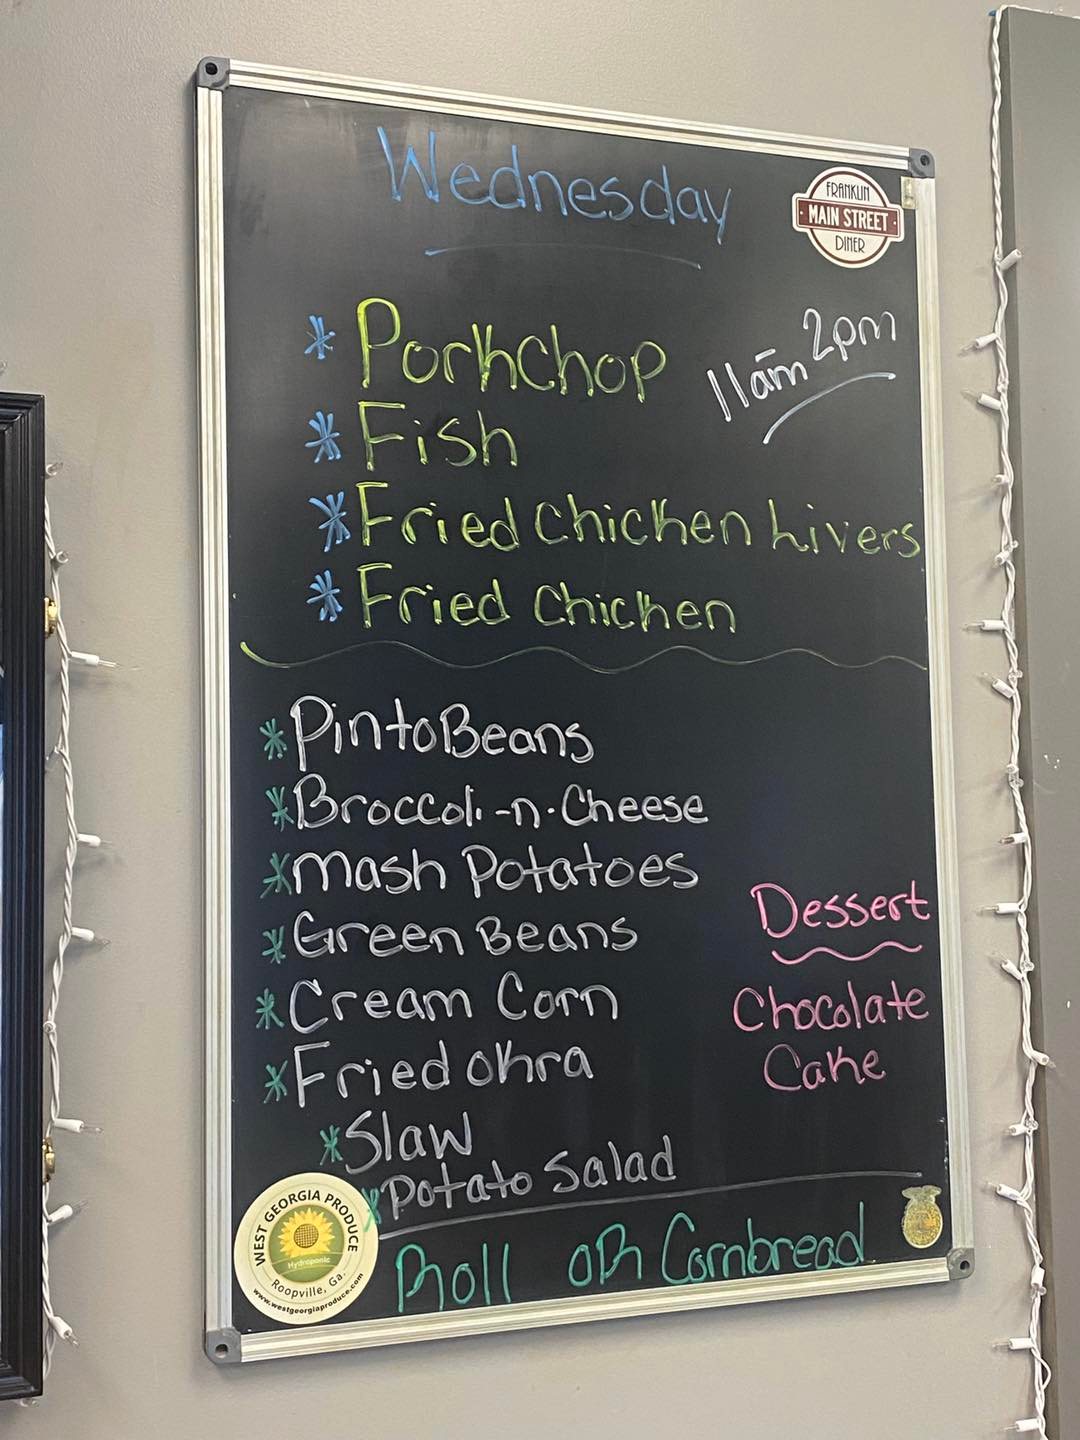 Wednesday
FRANKLIN
MAIN STREET
DINER
11am-2pm
* Porkchop
* Fish
* Fried Chicken Livers
* Fried Chicken
* Pinto Beans
* Broccoli-n-Cheese
* Mash Potatoes
* Green Beans
* Cream Corn
* Fried Okra
* Slaw
* Potato Salad
Dessert
Chocolate
Cake
Roll OR Cornbread
WEST GEORGIA PRODUCE
Hydroponic
Roopville, Ga.
www.westgeorgiaproduce.com